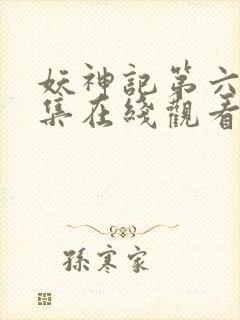 妖神記第六
集在綫觀看
孫寒家